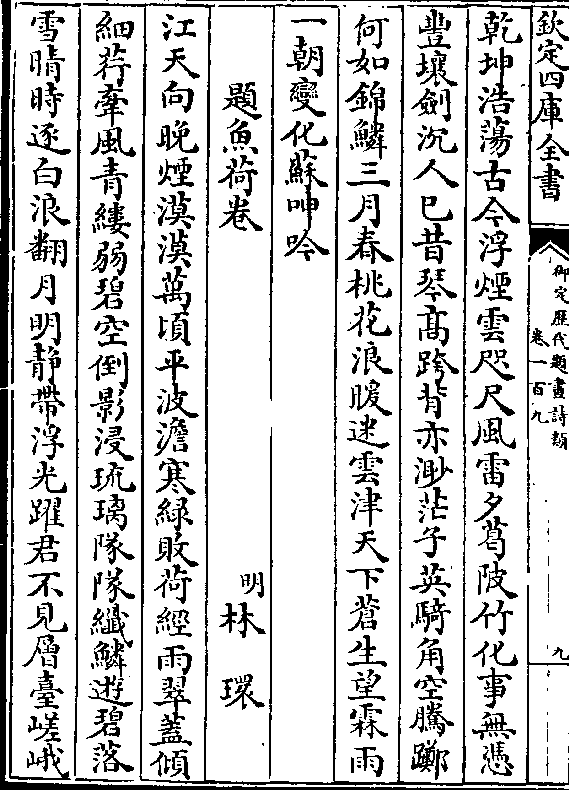 欽定四庫全書
御定歷代題畫詩類
卷一百九
九
乾坤浩蕩古今浮煙雲咫尺風雷夕葛陂竹化事無憑
豐壤劍沉人已昔琴髙跨背亦渺茫子英騎角空騰躑
何如錦鱗三月春桃花浪暖迷雲津天下蒼生望霖雨
一朝變化蘇呻吟
題魚荷卷
明林環
江天向晚煙漠漠萬頃平波澹寒綠敗荷經雨翠蓋傾
細荇牽風青縷弱碧空倒影浸琉璃隊隊纖鱗逰碧落
雪晴時逐白浪翻月明靜帶浮光躍君不見層臺嵯峨